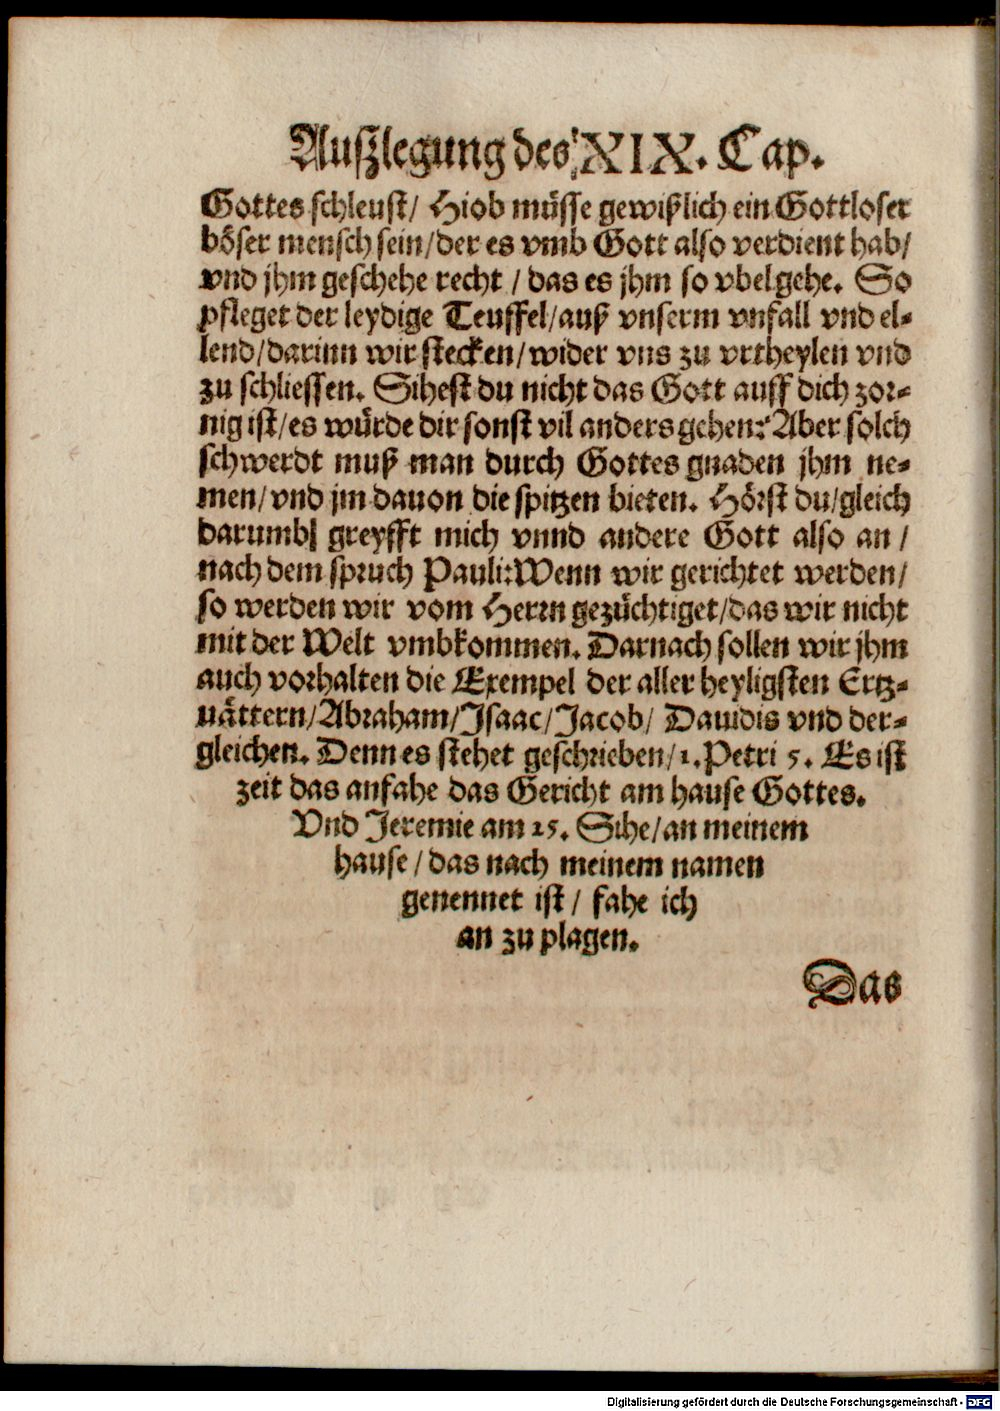 Außlegung des XIX. Cap.
Gottes schleust/ Hiob müsse gewißlich ein Gottloser
böser mensch sein/der es vmb Gott also verdient hab/
vnd jhm geschehe recht / das es jhm so vbel gehe. So
pfleget der leydige Teuffel/auß vnserm vnfall vnd el-
lend/darinn wir stecken/wider vns zu vrtheylen vnd
zu schliessen. Sihest du nicht das Gott auff dich zor-
nig ist/es würde dir sonst vil anders gehen? Aber solch
schwerdt muß man durch Gottes gnaden jhm ne-
men/vnd jm dauon die spitzen bieten. Hörst du/gleich
darumb/ greyfft mich vnnd andere Gott also an /
nach dem spruch Pauli: Wenn wir gerichtet werden/
so werden wir vom Herrn gezüchtiget/das wir nicht
mit der Welt vmbkommen. Darnach sollen wir jhm
auch vorhalten die Exempel der aller heyligsten Ertz-
vättern/Abraham/Isaac/Jacob/ Dauidis vnd der-
gleichen. Denn es stehet geschrieben/1. Petri 5. Es ist
zeit das anfahe das Gericht am hause Gottes.
Vnd Jeremie am 25. Sihe/an meinem
hause / das nach meinem namen
genennet ist / fahe ich
an zu plagen.
Das
Digitalisierung gefördert durch die Deutsche Forschungsgemeinschaft - DFG